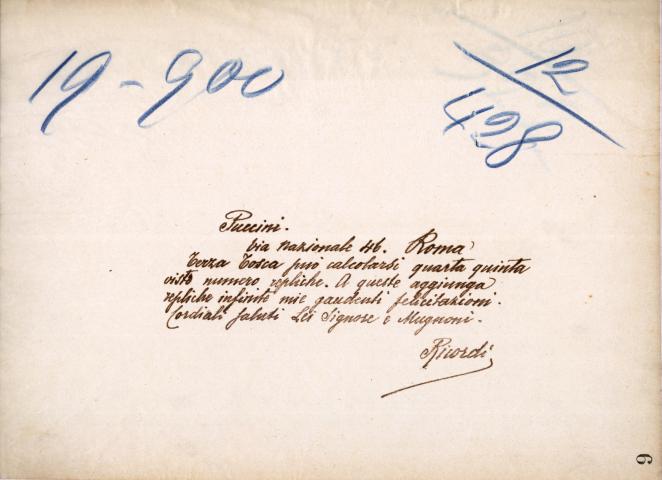 19-900
12
428
Puccini.
Via Nazionale 46. Roma
Terza Tosca può calcolarsi quarta quinta
visto numero repliche. A queste aggiunga
repliche infinite mie gaudenti felicitazioni.
Cordiali saluti Lei Signore e Mugnoni.
Ricordi
6